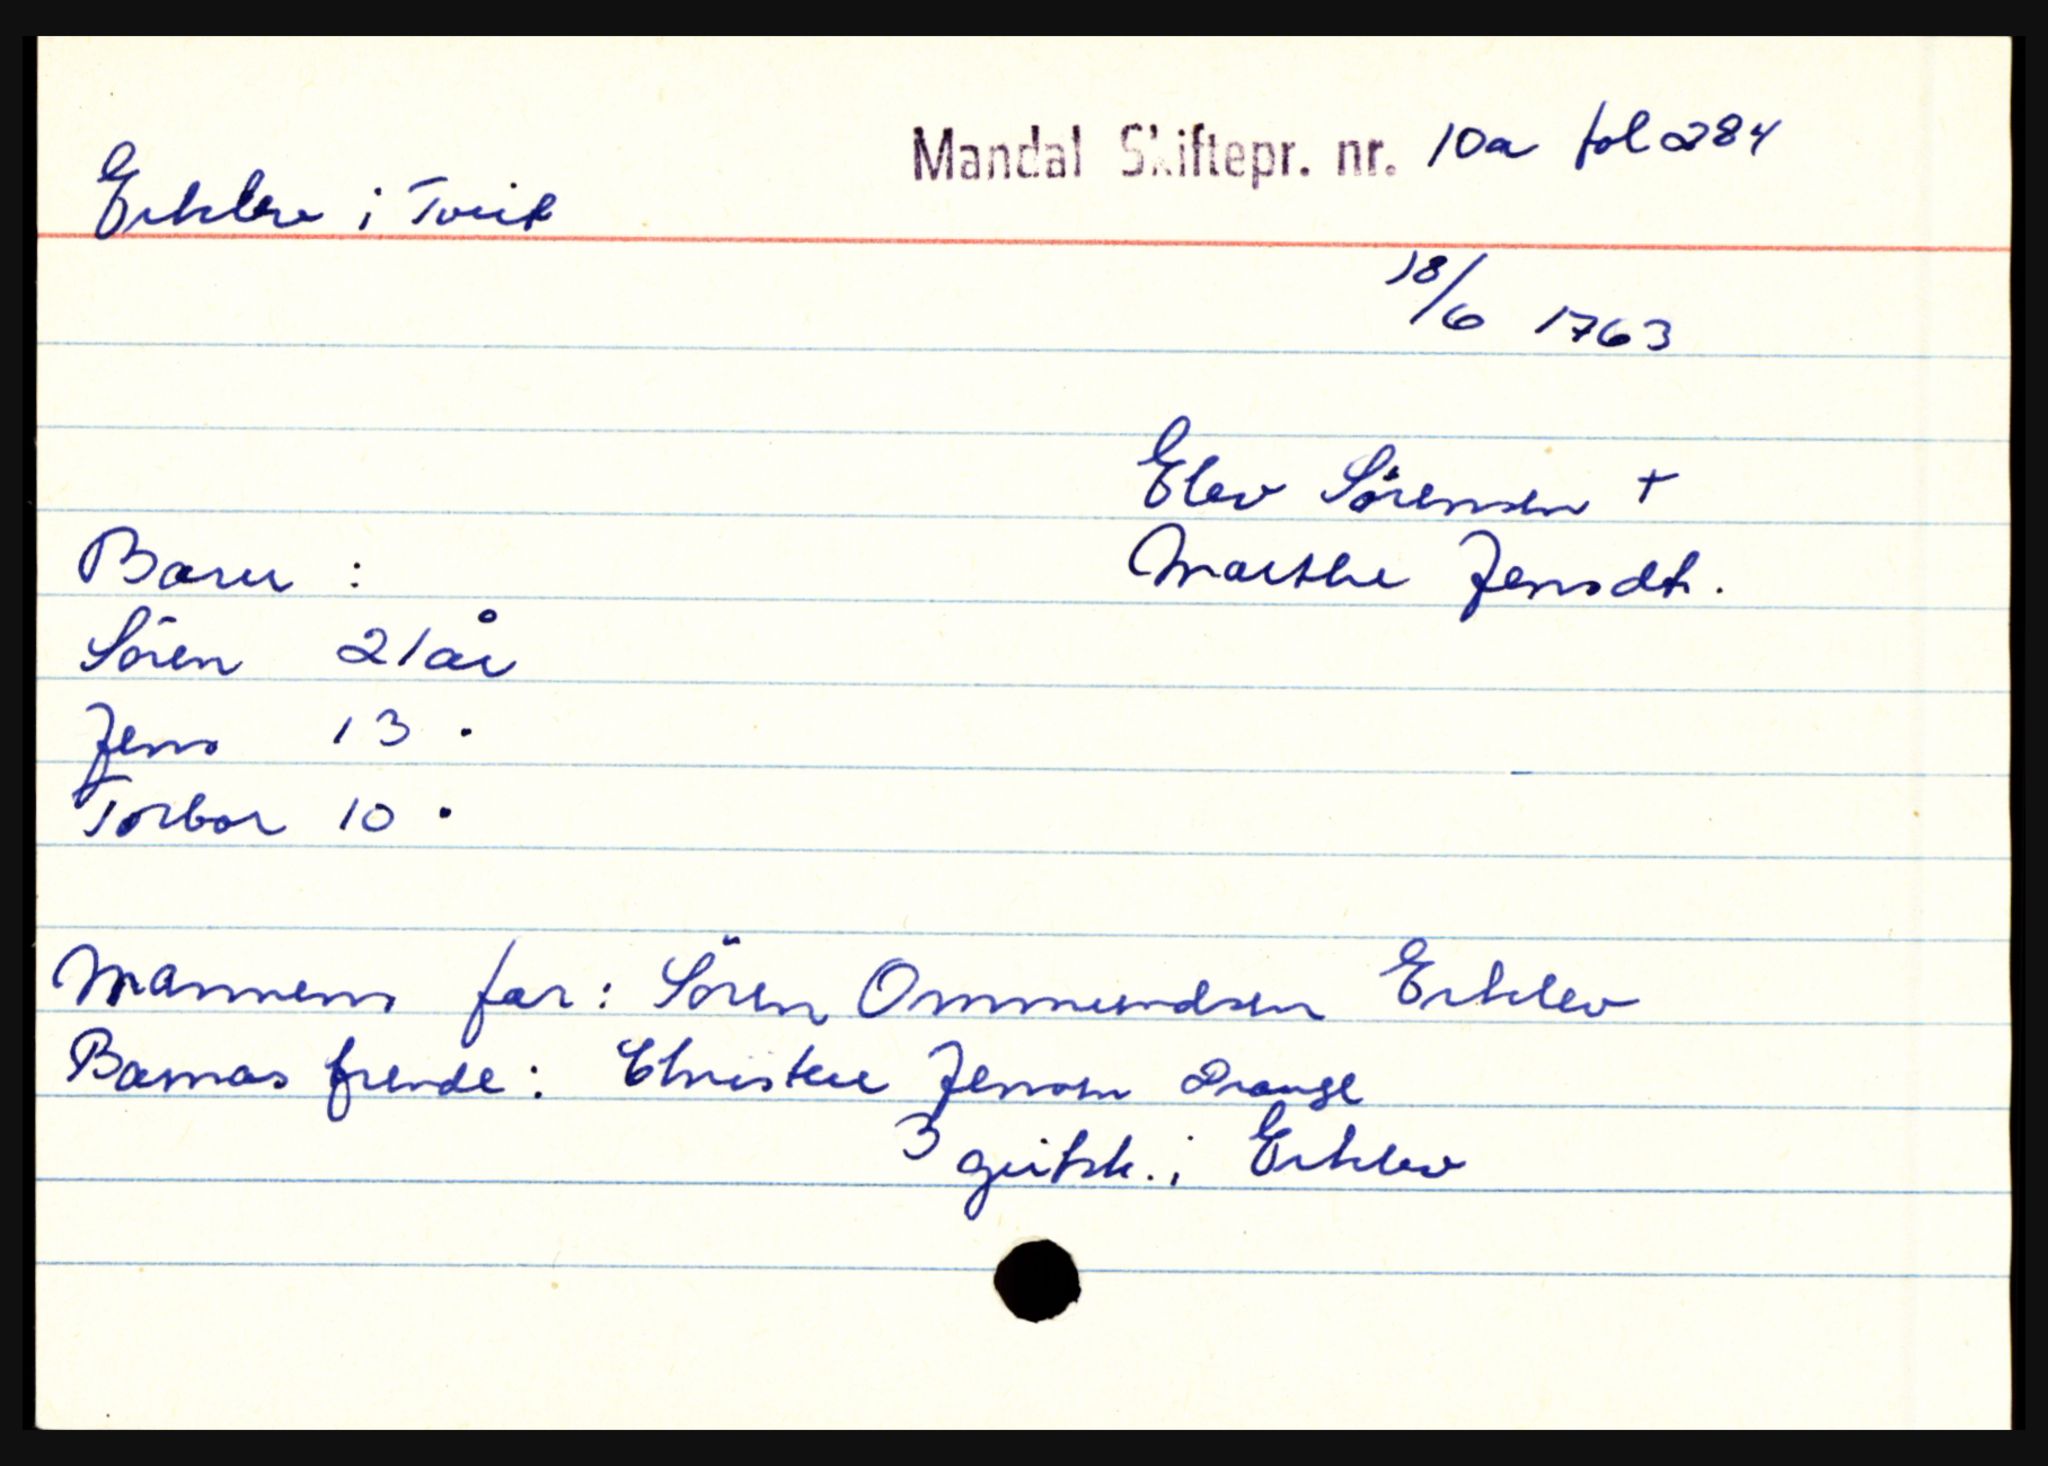 Mandal Skiftepr. nr. 10a fol 284
Erklev i Tveit
18/6 1763
Elev Sørensen +
Marthe Jensdt.
Barn :
Sören 21 år
Jens 13 .
Torbor 10 .
Mannens far : Sören Ommundsen Erklev
Barnas frende : Christen Jensen Drange
3 geitsk. i Erklev